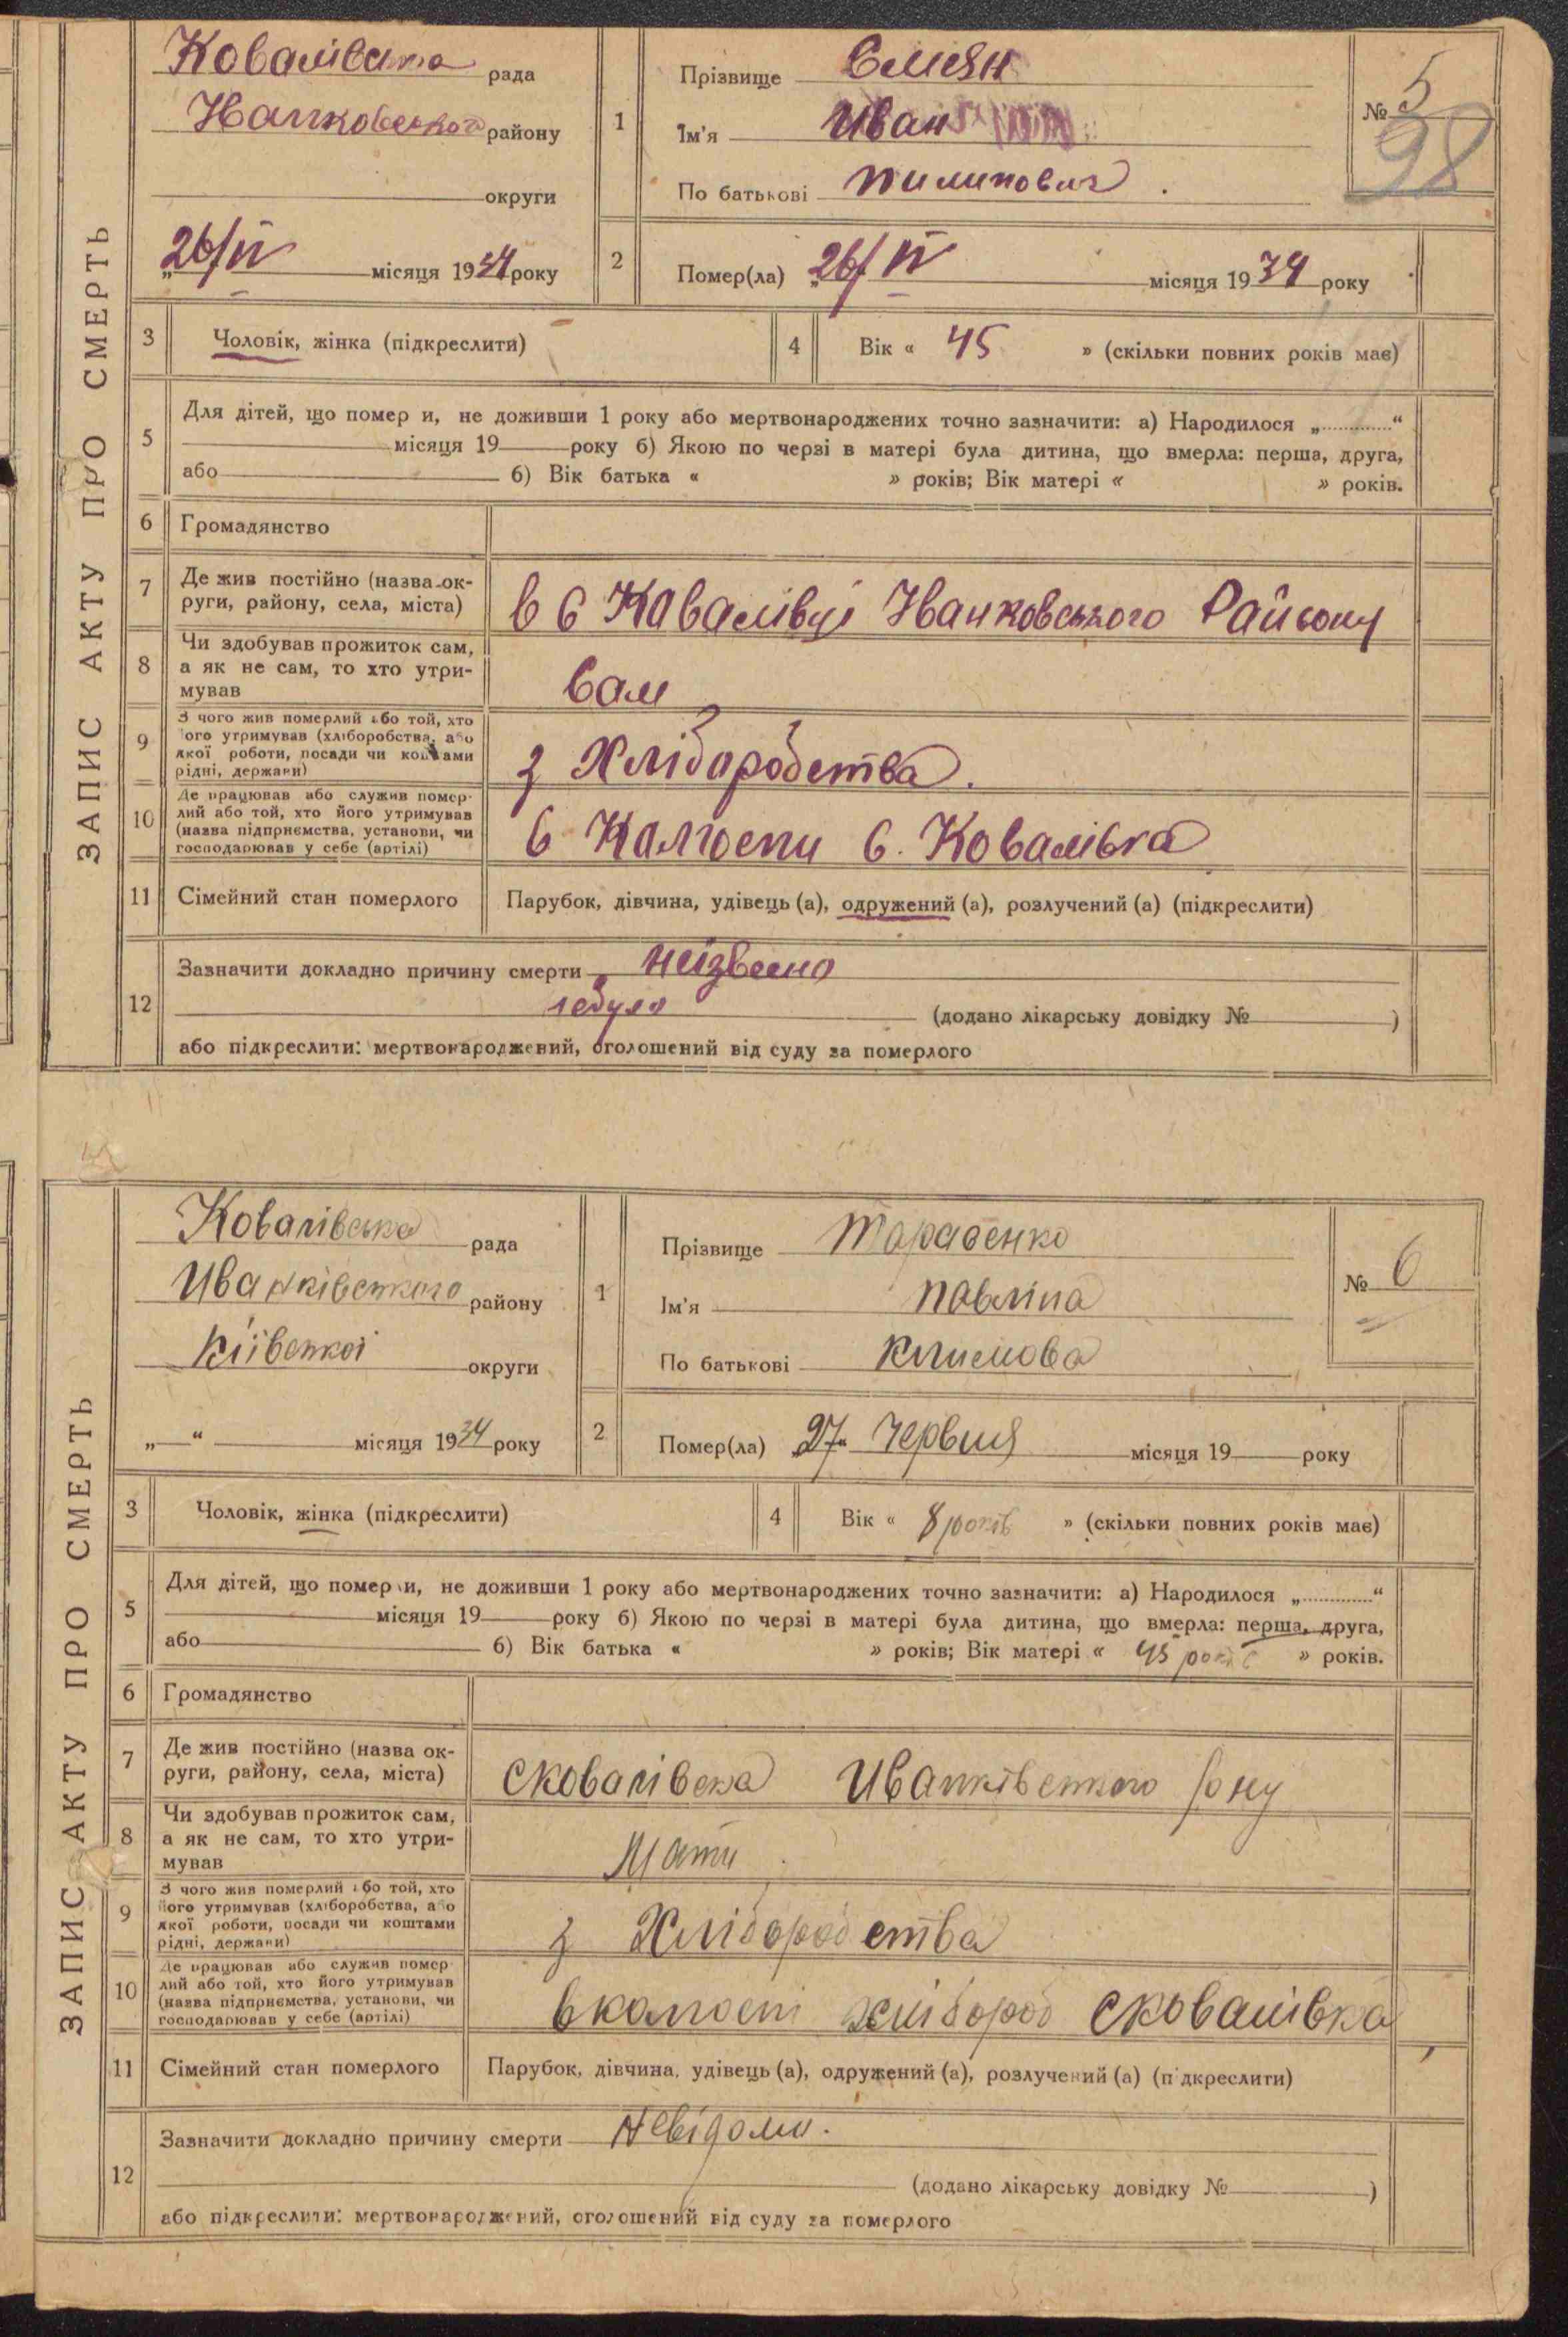 ЗАПИС АКТУ ПРО СМЕРТЬ
Ковалівска рада
району
округи
26/IV місяця 1934 року
1
Прізвище
Ім'я Иван
По батькові Пилипович
№ 5
98
2
Помер(ла) „26/IV місяця 1934 року
3 Чоловік, жінка (підкреслити)
4 Вік « 45 » (скільки повних років має)
5 Для дітей, що помер и, не доживши 1 року або мертвонароджених точно зазначити: а) Народилося „............“
місяця 19 року б) Якою по черзі в матері була дитина, що вмерла: перша, друга,
або б) Вік батька « » років; Вік матері « » років.
6 Громадянство
7 Де жив постійно (назва ок-
руги, району, села, міста)
в с Кавалівці Иванковського Району
8 Чи здобував прожиток сам,
а як не сам, то хто утри-
мував
Сам
9 З чого жив померлий або той, хто
його утримував (хліборобства, або
якої роботи, посади чи коштами
рідні, держави)
з Хліборобства.
10 Де працював або служив помер-
лий або той, хто його утримував
(назва підприємства, установи, чи
господарював у себе (артілі)
в Калгоспи с. Ковалівка
11 Сімейний стан померлого
Парубок, дівчина, удівець (а), одружений (а), розлучений (а) (підкреслити)
12 Зазначити докладно причину смерти неізвесно
(додано лікарську довідку № )
або підкреслити: мертвонароджений, оголошений від суду за померлого
ЗАПИС АКТУ ПРО СМЕРТЬ
Ковалівська рада
Иванківського району
Київської округи
„ “ місяця 1934 року
1
Прізвище Тарасенко
Ім'я Павліна
По батькові Климова
№ 6
2
Помер(ла) „27“ Червня місяця 19 року
3 Чоловік, жінка (підкреслити)
4 Вік « 8 років » (скільки повних років має)
5 Для дітей, що помер и, не доживши 1 року або мертвонароджених точно зазначити: а) Народилося „............“
місяця 19 року б) Якою по черзі в матері була дитина, що вмерла: перша, друга,
або б) Вік батька « » років; Вік матері « 45 років » років.
6 Громадянство
7 Де жив постійно (назва ок-
руги, району, села, міста)
с Ковалівска Иванківського рону
8 Чи здобував прожиток сам,
а як не сам, то хто утри-
мував
Мати
9 З чого жив померлий або той, хто
його утримував (хліборобства, або
якої роботи, посади чи коштами
рідні, держави)
з Хліборобства
10 Де працював або служив помер-
лий або той, хто його утримував
(назва підприємства, установи, чи
господарював у себе (артілі)
в колгоспі хлібороб с Ковалівка
11 Сімейний стан померлого
Парубок, дівчина, удівець (а), одружений (а), розлучений (а) (підкреслити)
12 Зазначити докладно причину смерти Невідомо.
(додано лікарську довідку № )
або підкреслити: мертвонароджений, оголошений від суду за померлого